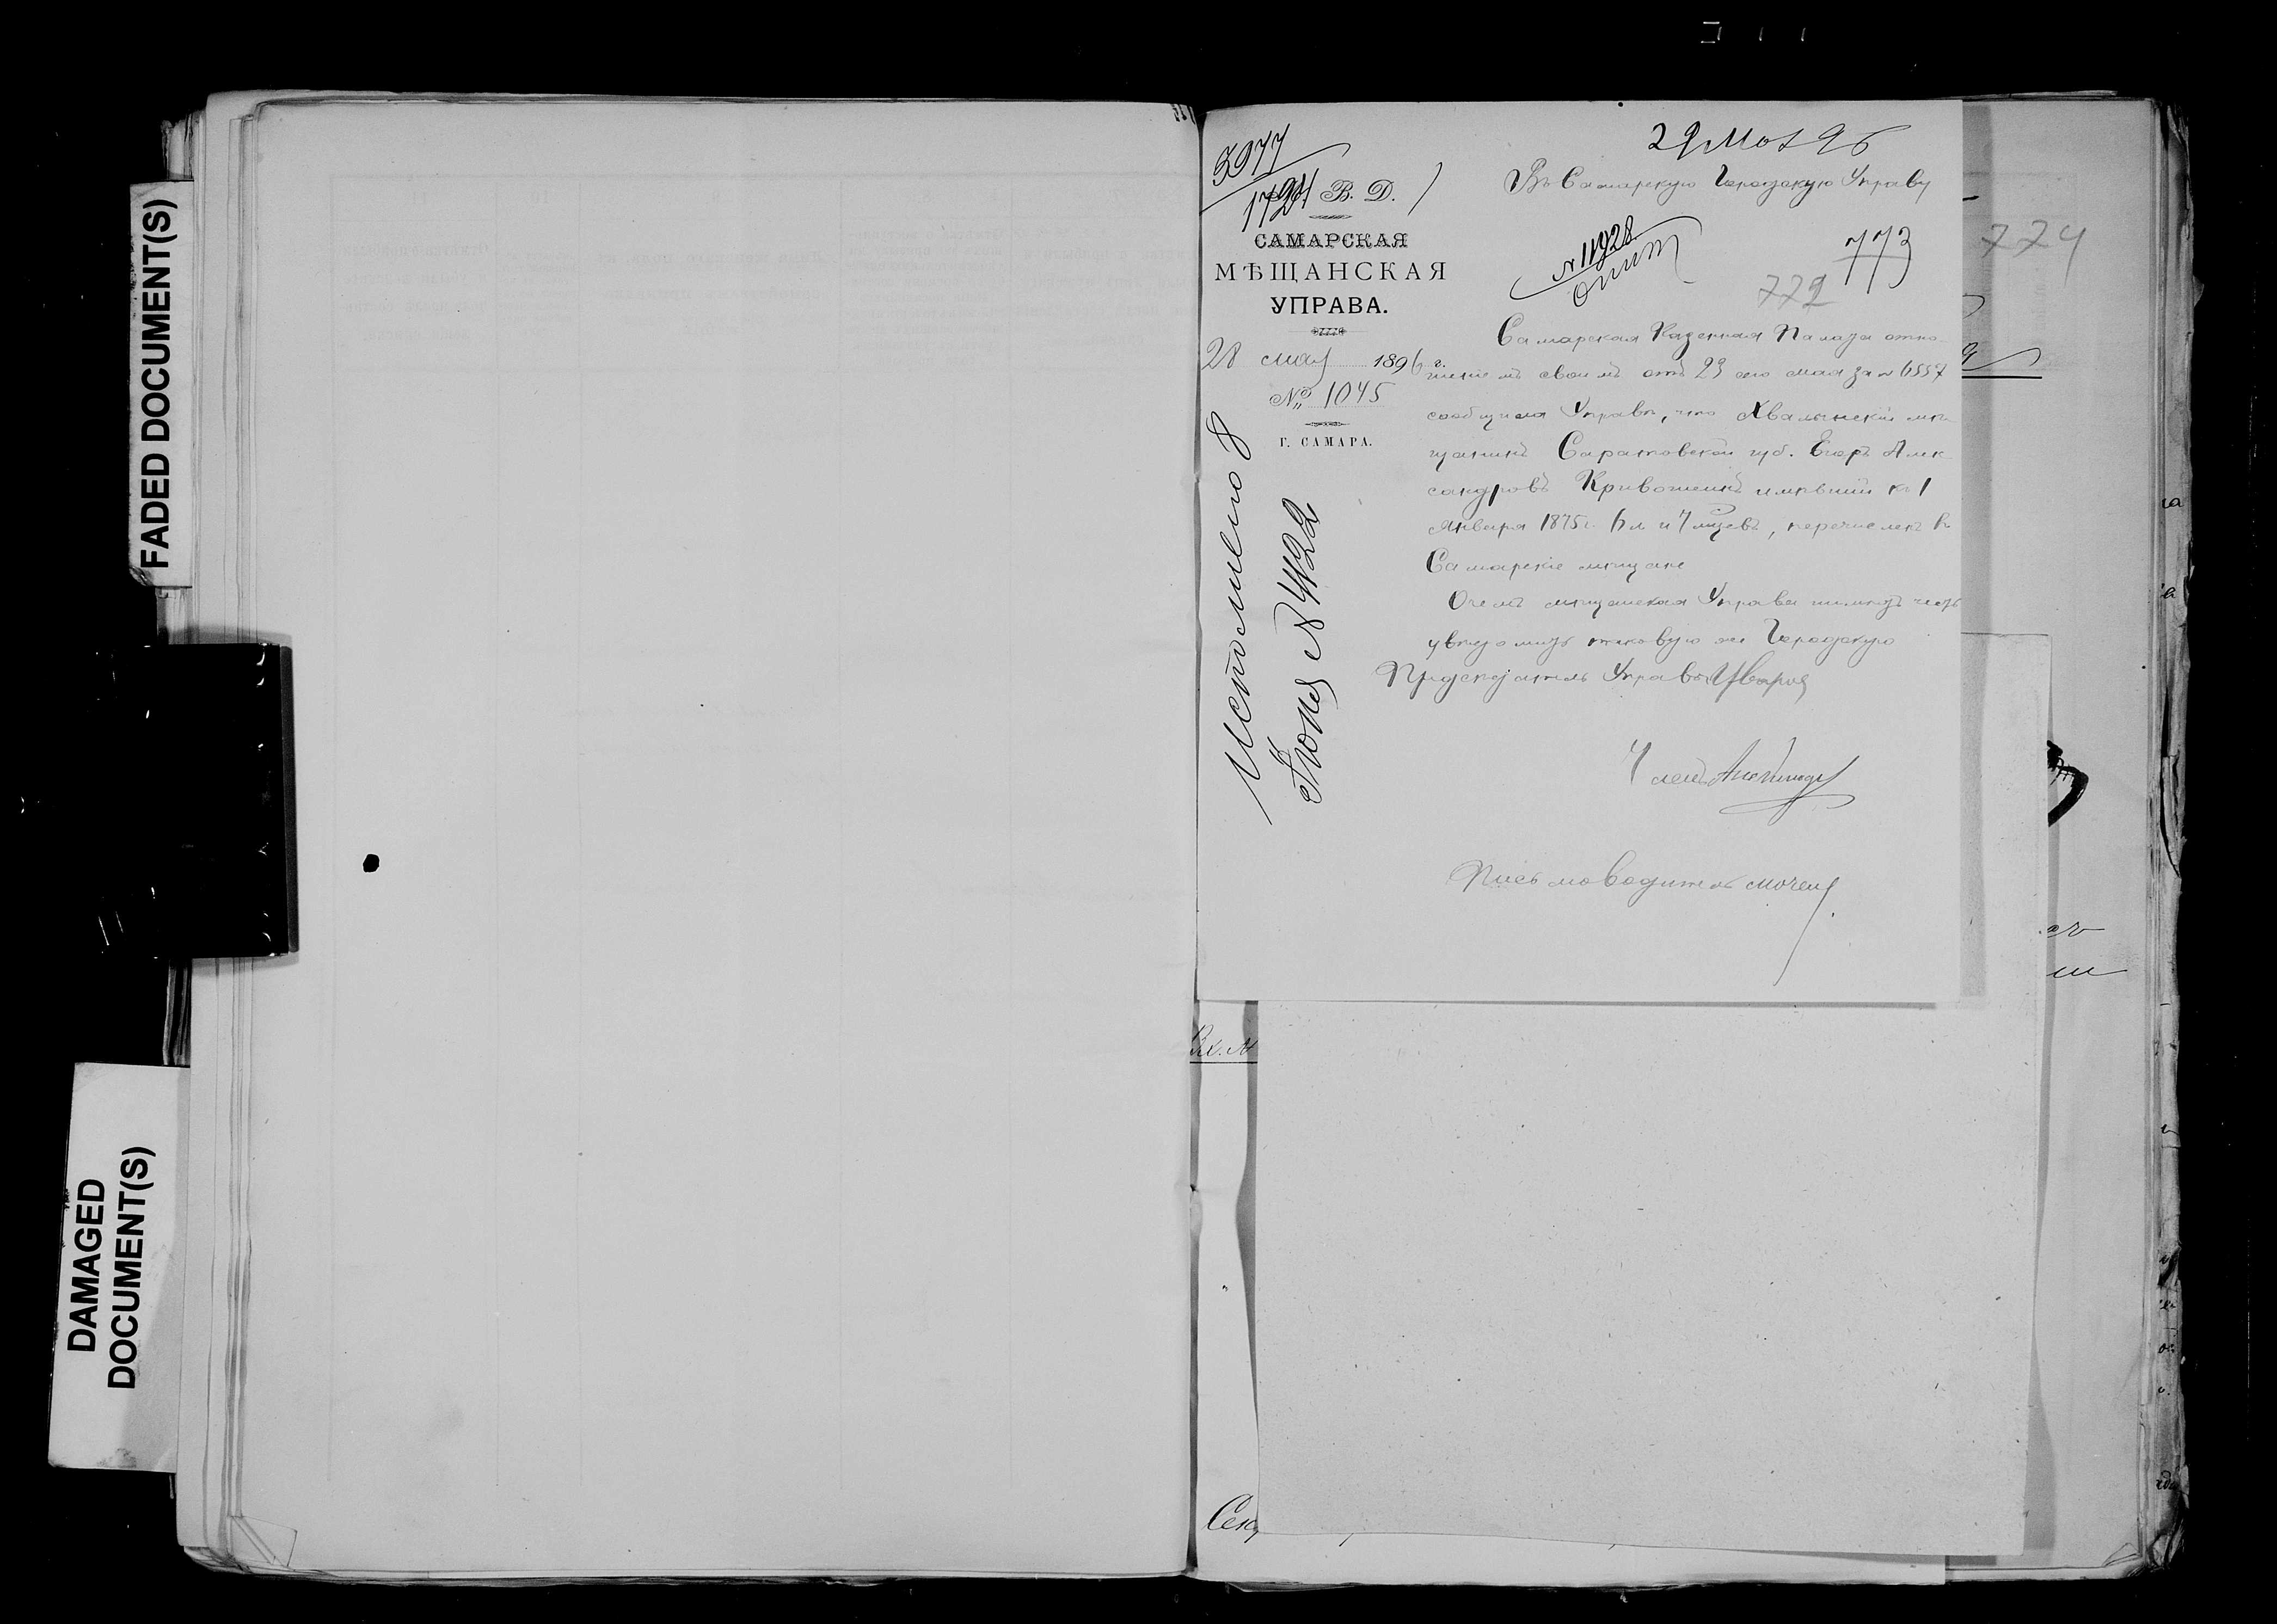 FADED DOCUMENT(S)
DAMAGED
DOCUMENT(S)
3977
1724
М. В. Д.
САМАРСКАЯ
МѢЩАНСКАЯ
УПРАВА.
28 мая 1896 г.
№ 1045
Г. САМАРА.
Исполнено 8
Іюня № 4422
29 Мая 96
Въ Самарскую Городскую Управу
№ 11928
773
772
774
Самарская Казенная Палата отно
шеніемъ своимъ отъ 23 сего мая за № 6557
сообщила Управѣ, что Хвалынскій мѣ
щанинъ Саратовской губ. Егоръ Алек
сандровъ Кривошеинъ имѣвшій къ 1
Января 1875 г. 6 л и 7 мѣсяцевъ, перечисленъ въ
Самарскіе мѣщане
О чемъ мѣщанская Управа имѣетъ честь
увѣдомить таковую же Городскую
Предсѣдатель Управы Уваровъ
Членъ
Письмоводитель
Вх. №
Сек